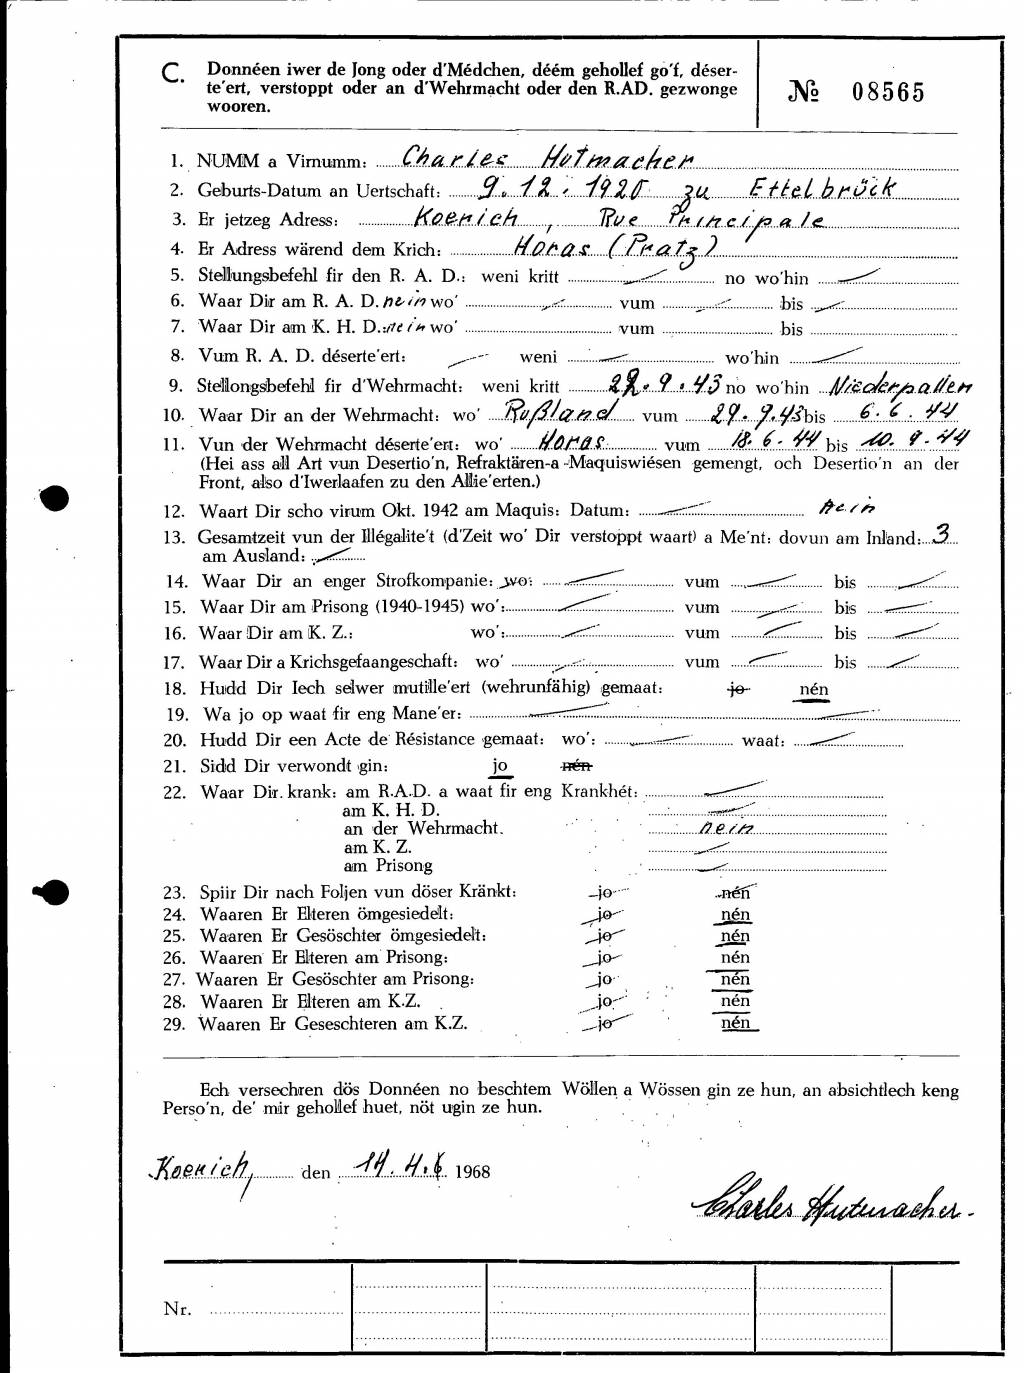 C. Donnéen iwer de Jong oder d'Médchen, déém gehollef go'f, déser-
te'ert, verstoppt oder an d'Wehrmacht oder den R.AD. gezwonge
wooren.
№ 08565
1. NUMM a Virnumm: Charles Hutmacher
2. Geburts-Datum an Uertschaft: 9.12.1920 zu Ettelbrück
3. Er jetzeg Adress: Koerich, Rue Principale
4. Er Adress wärend dem Krich: Horas (Pratz)
5. Stellungsbefehl fir den R. A. D.: weni kritt no wo'hin
6. Waar Dir am R. A. D. nein wo' vum bis
7. Waar Dir am K. H. D.: nein wo' vum bis
8. Vum R. A. D. déserte'ert: weni wo'hin
9. Stellongsbefehl fir d'Wehrmacht: weni kritt 22.9.43 no wo'hin Niederpallen
10. Waar Dir an der Wehrmacht: wo' Rußland vum 29.9.43 bis 6.6.44
11. Vun der Wehrmacht déserte'ert: wo' Horas vum 18.6.44 bis 10.9.44
(Hei ass all Art vun Desertio'n, Refraktären-a-Maquiswiésen gemengt, och Desertio'n an der
Front, also d'Iwerlaafen zu den Allie'erten.)
12. Waart Dir scho virum Okt. 1942 am Maquis: Datum: nein
13. Gesamtzeit vun der Illégalite't (d'Zeit wo' Dir verstoppt waart) a Me'nt: dovun am Inland: 3
am Ausland:
14. Waar Dir an enger Strofkompanie: wo: vum bis
15. Waar Dir am Prisong (1940-1945) wo': vum bis
16. Waar Dir am K. Z.: wo': vum bis
17. Waar Dir a Krichsgefaangeschaft: wo' vum bis
18. Hudd Dir Iech selwer mutille'ert (wehrunfähig) gemaat: jo nén
19. Wa jo op waat fir eng Mane'er:
20. Hudd Dir een Acte de Résistance gemaat: wo': waat:
21. Sidd Dir verwondt gin: jo nén
22. Waar Dir krank: am R.A.D. a waat fir eng Krankhét:
am K. H. D.
an der Wehrmacht. nein
am K. Z.
am Prisong
23. Spiir Dir nach Foljen vun döser Kränkt: jo nén
24. Waaren Er Elteren ömgesiedelt: jo nén
25. Waaren Er Gesöschter ömgesiedelt: jo nén
26. Waaren Er Elteren am Prisong: jo nén
27. Waaren Er Gesöschter am Prisong: jo nén
28. Waaren Er Elteren am K.Z. jo nén
29. Waaren Er Geseschteren am K.Z. jo nén
Ech versechren dös Donnéen no beschtem Wöllen a Wössen gin ze hun, an absichtlech keng
Perso'n, de' mir gehollef huet, nöt ugin ze hun.
Koerich, den 14.4. 1968
Charles Hutmacher
Nr.